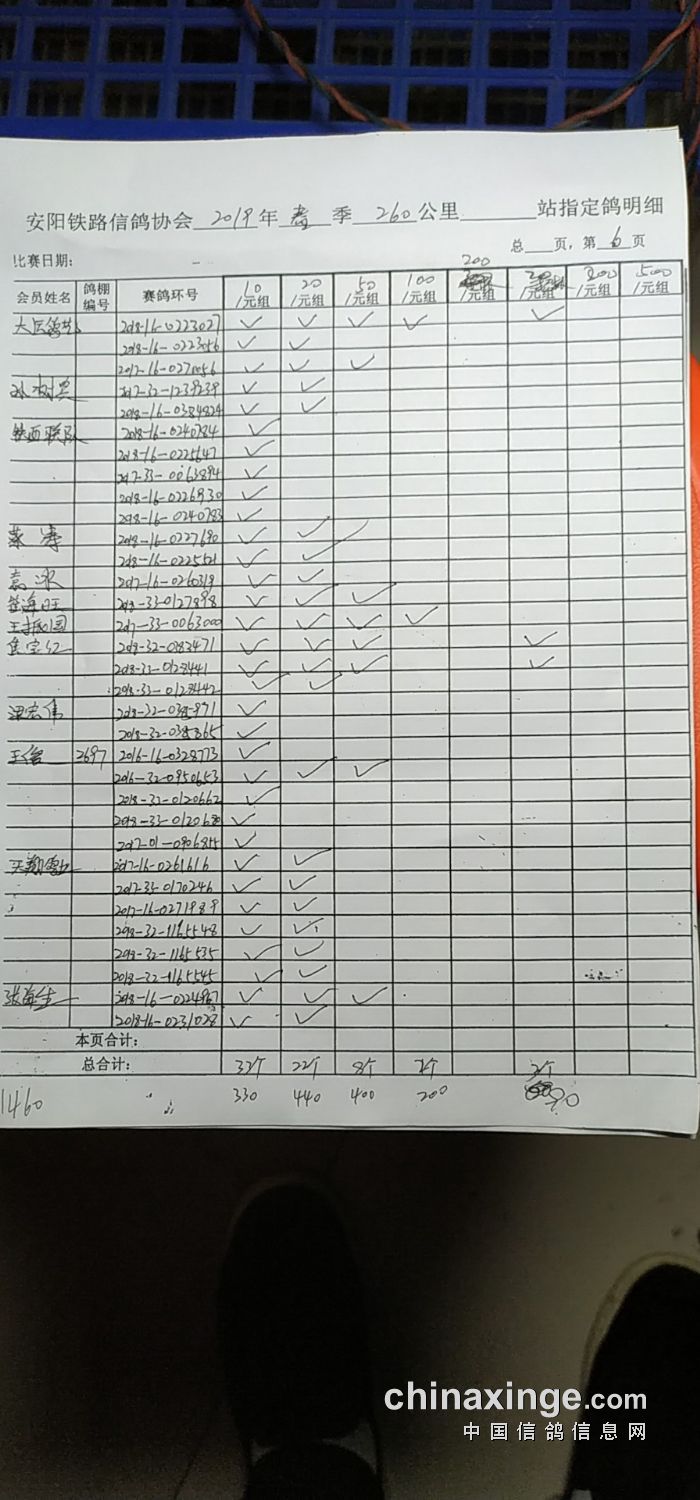 安阳铁路信鸽协会 2019 年 春 季 260 公里 站指定鸽明细
总 页，第 6 页
比赛日期：
200
会员姓名 鸽棚编号 赛鸽环号 10/元组 20/元组 50/元组 100/元组 /元组 /元组 300/元组 500/元组
2018-16-0223027 ✓ ✓ ✓ ✓ ✓
2018-16-0223056 ✓ ✓
2017-16-0270056 ✓ ✓ ✓
孙树 2017-32-1239239 ✓ ✓
2018-16-0384824 ✓ ✓
铁西联队 2018-16-0240784 ✓
2018-16-0225647 ✓
2017-33-0063894 ✓
2018-16-0226930 ✓
2018-16-0240783 ✓
2018-16-0227690 ✓ ✓ ✓
2018-16-0225521 ✓ ✓
2017-16-0260319 ✓ ✓
海旺 2018-33-0127898 ✓ ✓ ✓
王振国 2017-33-0063000 ✓ ✓ ✓ ✓
焦宝红 2018-32-0182471 ✓ ✓ ✓ ✓
2018-33-0128441 ✓ ✓ ✓ ✓
2018-33-0128442 ✓ ✓
梁宏伟 2018-32- ✓
2018-32- ✓
王俊 2697 2016-16-0328773 ✓
2016-32-0950653 ✓ ✓ ✓
2018-33-0120662 ✓
2018-33-0120680 ✓
2017-01-0906855 ✓
天翔 2017-16-0261616 ✓ ✓
2017-33-0170246 ✓ ✓
2017-16-0271989 ✓ ✓
2018-32-1165548 ✓ ✓
2018-32-1165535 ✓ ✓
2018-32-1165545 ✓ ✓
张海生 2018-16-0224967 ✓ ✓ ✓
2018-16-0231028 ✓ ✓
本页合计：
总合计： 33个 22个 8个 2个 3个
1460 330 440 400 200 90
chinaxinge.com
中国信鸽信息网